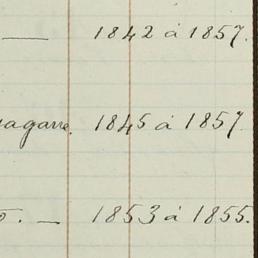 — 1842 à 1857.
agarre. 1845 à 1857
o. — 1853 à 1855.